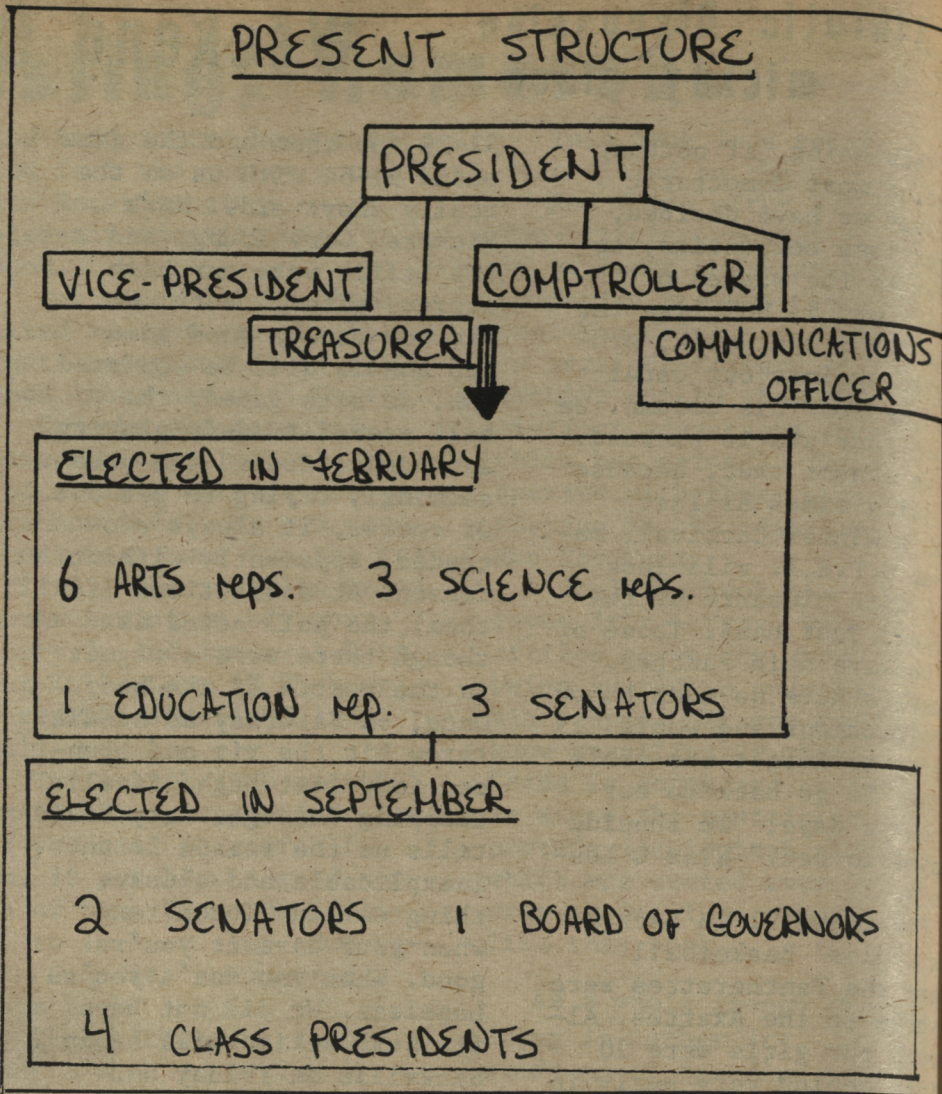 PRESENT STRUCTURE
PRESIDENT
VICE-PRESIDENT
COMPTROLLER
TREASURER
COMMUNICATIONS
OFFICER
ELECTED IN FEBRUARY
6 ARTS reps. 3 SCIENCE reps.
1 EDUCATION rep. 3 SENATORS
ELECTED IN SEPTEMBER
2 SENATORS 1 BOARD OF GOVERNORS
4 CLASS PRESIDENTS